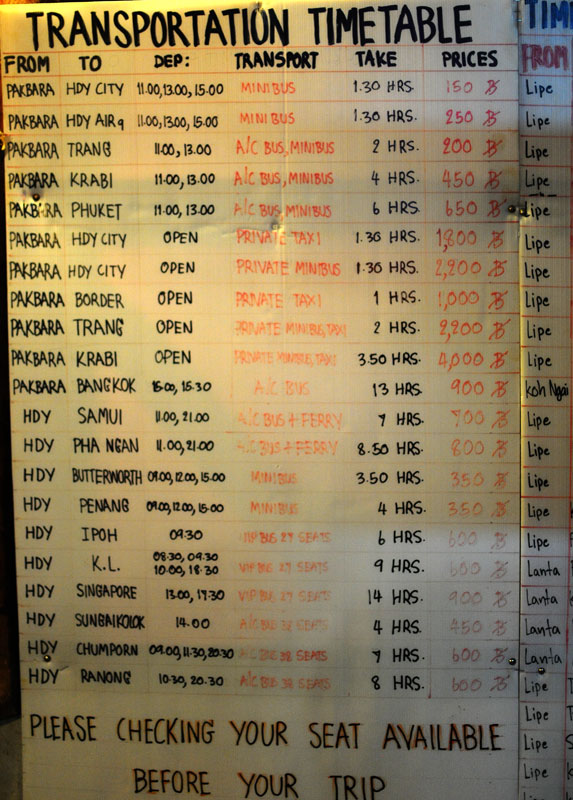 TRANSPORTATION TIMETABLE
FROM TO DEP: TRANSPORT TAKE PRICES
PAKBARA HDY CITY 11.00,13.00, 15.00 MINIBUS 1.30 HRS. 150 ฿
PAKBARA HDY AIRq 11.00,13.00, 15.00 MINIBUS 1.30 HRS. 250 ฿
PAKBARA TRANG 11.00, 13.00 A/C BUS, MINIBUS 2 HRS. 200 ฿
PAKBARA KRABI 11.00, 13.00 A/C BUS, MINIBUS 4 HRS. 450 ฿
PAKBARA PHUKET 11.00, 13.00 A/C BUS, MINIBUS 6 HRS. 650 ฿
PAKBARA HDY CITY OPEN PRIVATE TAXI 1.30 HRS. 1,800 ฿
PAKBARA HDY CITY OPEN PRIVATE MINIBUS 1.30 HRS. 2,200 ฿
PAKBARA BORDER OPEN PRIVATE TAXI 1 HRS. 1,000 ฿
PAKBARA TRANG OPEN PRIVATE MINIBUS,TAXI 2 HRS. 2,200 ฿
PAKBARA KRABI OPEN PRIVATE MINIBUS,TAXI 3.50 HRS. 4,000 ฿
PAKBARA BANGKOK 15.30 A/C BUS 13 HRS. 900 ฿
HDY SAMUI 11.00, 21.00 A/C BUS + FERRY 7 HRS. 700 ฿
HDY PHA NGAN 11.00, 21.00 A/C BUS + FERRY 8.50 HRS. 800 ฿
HDY BUTTERWORTH 09.00, 12.00, 15.00 MINIBUS 3.50 HRS. 350 ฿
HDY PENANG 09.00, 12.00, 15.00 MINIBUS 4 HRS. 350 ฿
HDY IPOH 09.30 VIP BUS 27 SEATS 6 HRS. 600 ฿
HDY K.L. 08.30, 09.30 VIP BUS 27 SEATS 9 HRS. 600 ฿
10.00, 18.30
HDY SINGAPORE 13.00, 17.30 VIP BUS 27 SEATS 14 HRS. 900 ฿
HDY SUNGAIKOLOK 14.00 A/C BUS 38 SEATS 4 HRS. 450 ฿
HDY CHUMPORN 09.00,11.30,20.30 A/C BUS 38 SEATS 7 HRS. 600 ฿
HDY RANONG 10.30, 20.30 A/C BUS 38 SEATS 8 HRS. 600 ฿
PLEASE CHECKING YOUR SEAT AVAILABLE
BEFORE YOUR TRIP
FROM
Lipe
Lipe
Lipe
Lipe
Lipe
Lipe
Lipe
Lipe
Lipe
Lipe
Koh Ngai
Lipe
Lipe
Lipe
Lipe
Lipe
Lanta
Lanta
Lanta
Lanta
Lipe
Lipe
Lipe
Lipe